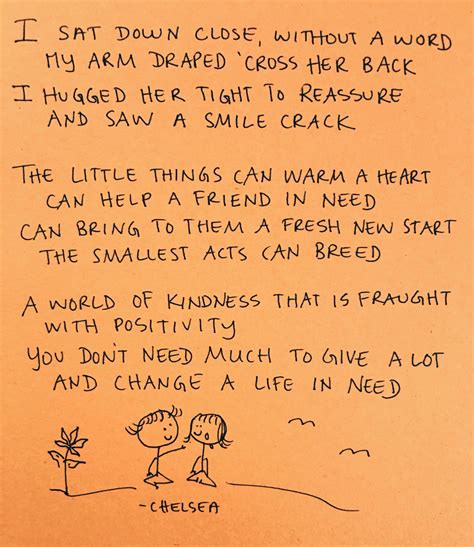 I SAT DOWN CLOSE, WITHOUT A WORD
MY ARM DRAPED 'CROSS HER BACK
I HUGGED HER TIGHT TO REASSURE
AND SAW A SMILE CRACK
THE LITTLE THINGS CAN WARM A HEART
CAN HELP A FRIEND IN NEED
CAN BRING TO THEM A FRESH NEW START
THE SMALLEST ACTS CAN BREED
A WORLD OF KINDNESS THAT IS FRAUGHT
WITH POSITIVITY
YOU DON'T NEED MUCH TO GIVE A LOT
AND CHANGE A LIFE IN NEED
-CHELSEA